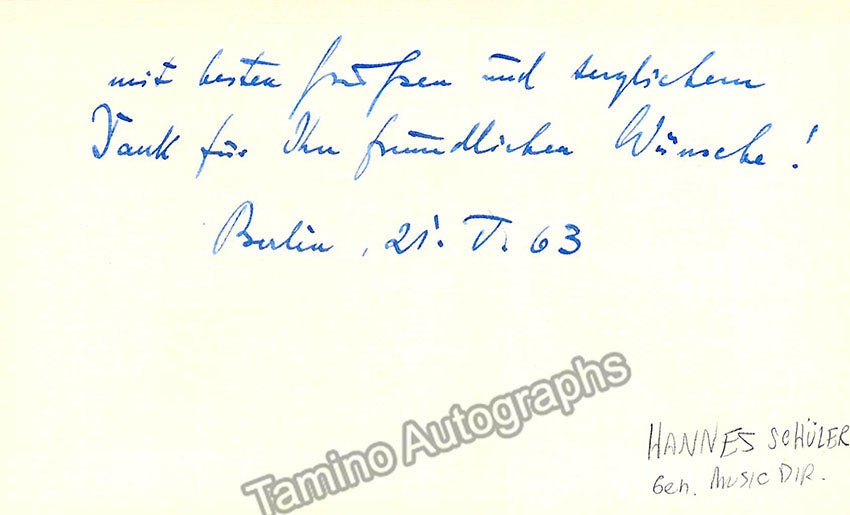 mit besten Grüßen und herzlichem
Dank für Ihre freundlichen Wünsche!
Berlin, 21. V. 63
Tamino Autographs
HANNES SCHÜLER
Gen. MUSIC DIR.